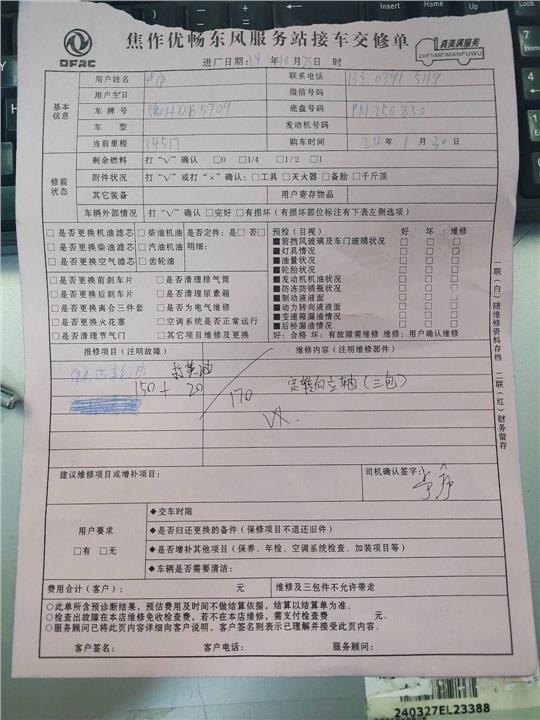 DFAC
焦作优畅东风服务站接车交修单
真美满服务
ZHENMEIMANFUWU
进厂日期:24 年 10 月 25 日 时
基本信息
用户姓名
联系电话 133 0391 5119
用户生日
微信号码
车牌号 豫HDB5709
底盘号码 PN250830
车 型
发动机号码
当前里程 34517
购车时间 24 年 1 月 30 日
修前状态
剩余燃料 打“√”确认 □0 □1/4 □1/2 □1
附件状况 打“√”或打“×”确认:□工具 □灭火器 □备胎 □千斤顶
其它装备 用户寄存物品
车辆外部情况 打“√”确认 □完好 □有损坏(有损坏部位标注有下表左侧选项)
□是否更换机油滤芯 □柴油机油 □是否定件:是□ 否□
□是否更换柴油滤芯 □汽油机油 明细:
□是否更换空气滤芯 □齿轮油
□是否更换前刹车片 □是否清理排气筒
□是否更换后刹车片 □是否清理尿素箱
□是否更换离合三件套 □是否为电气维修
□是否更换火花塞 □空调系统是否正常运行
□是否清理节气门 □其它项目维修及更换
预检(目视) 好 坏 维修
■前挡风玻璃及车门玻璃状况 □ □ □
■灯具情况 □ □ □
■油量状况 □ □ □
■轮胎状况 □ □ □
■发动机机油状况 □ □ □
■防冻防锈瓶状况 □ □ □
■制动液液面 □ □ □
■动力转向液液面 □ □ □
■变速箱漏油情况 □ □ □
■后桥漏油情况 □ □ □
好:合格 坏:有故障需维修 维修:用户确认维修
报修项目(注明故障) 维修内容(注明维修部件)
打黄油
150 + 20
170
定转向主轴(三包)
建议维修项目或增补项目:
司机确认签字:
用户要求
□有 □无
◆交车时限
◆是否归还更换的备件(保修项目不退还旧件)
◆是否增补其他项目(保养、年检、空调系统检查、加装项目等)
◆车辆是否需要清洁:
费用合计(客户): 元 维修及三包件不允许带走
○此单所含预诊断结果,预估费用及时间不做结算依据,结算以结算单为准。
○检查出故障在本店维修免收检查费,若不在本店维修,需支付检查费 元。
○服务顾问已将此页内容详细向客户说明,客户签名则表示已理解并接受此页内容。
客户签名: 客户电话: 服务顾问:
一联(白)随维修资料存档
二联(红)财务留存
240327EL23388